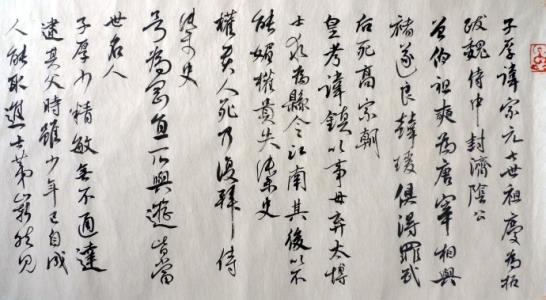 子厚諱宗元七世祖慶為拓
跋魏侍中封濟陰公
曾伯祖奭為唐宰相與
褚遂良韓瑗俱得罪武
后死高宗朝
皇考諱鎮以事母弃太博
士求為縣令江南其後以不
能媚權貴失御史
權貴人死乃復拜侍
御史
号為剛直所與遊皆當
世名人
子厚少精敏無不通達
逮其父時雖少年已自成
人能取進士第嶄然見